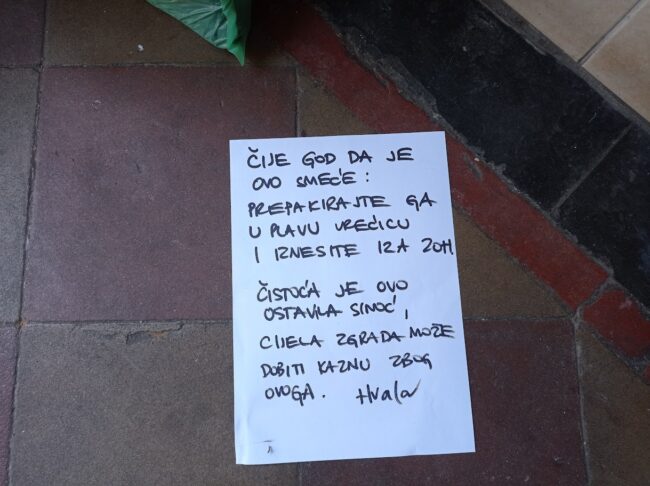 ČIJE GOD DA JE
OVO SMEĆE:
PREPAKIRAJTE GA
U PLAVU VREĆICU
I IZNESITE IZA 20H.
ČISTOĆA JE OVO
OSTAVILA SINOĆ,
CIJELA ZGRADA MOŽE
DOBITI KAZNU ZBOG
OVOGA. Hvala